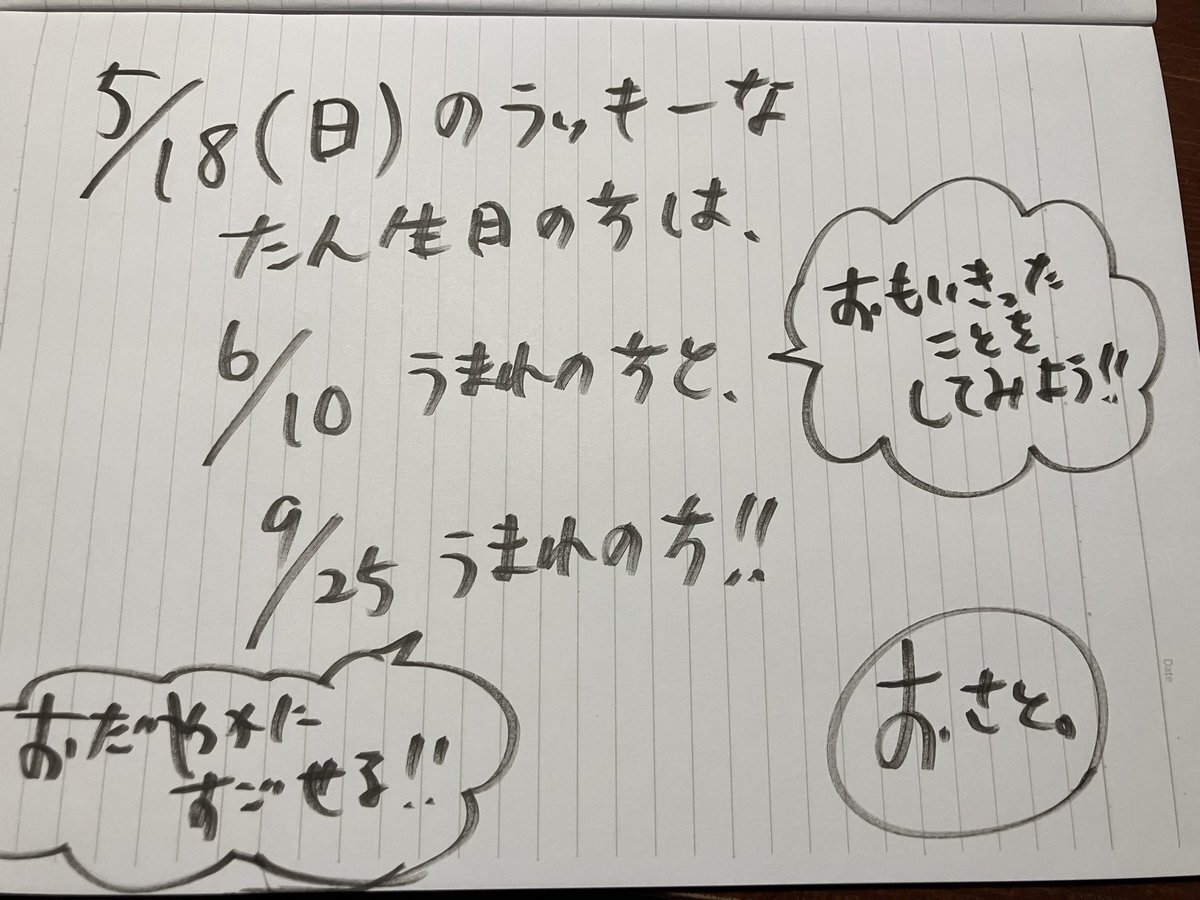 5/18(日)のラッキーな
たん生日の方は、
6/10 うまれの方と、
おもいきった
ことを
してみよう!!
9/25 うまれの方!!
おだやかに
すごせる!!
おさと。
Date